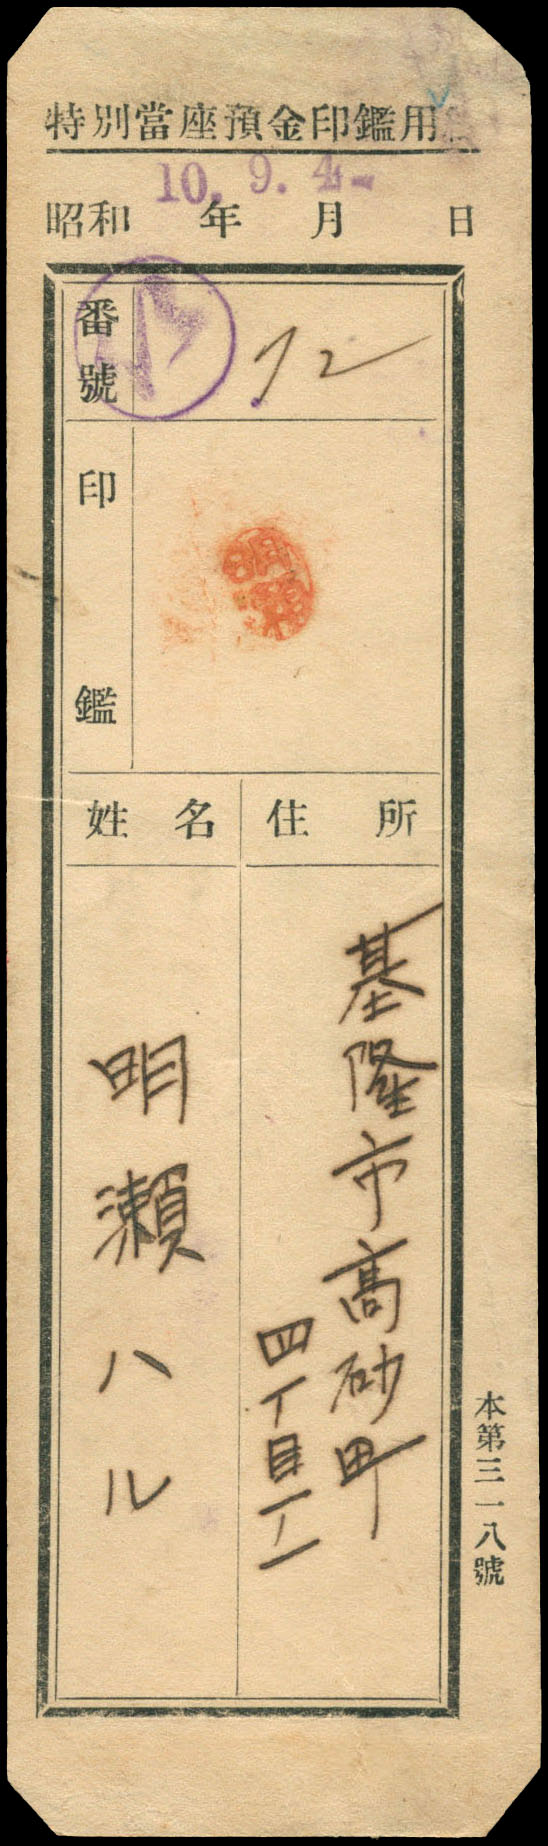 特別當座預金印鑑用
10. 9. 4-
昭和 年 月 日
番號
72
印鑑
明瀬
姓名 住所
基隆市高砂町
四丁目
明瀬ハル
本第三一八號